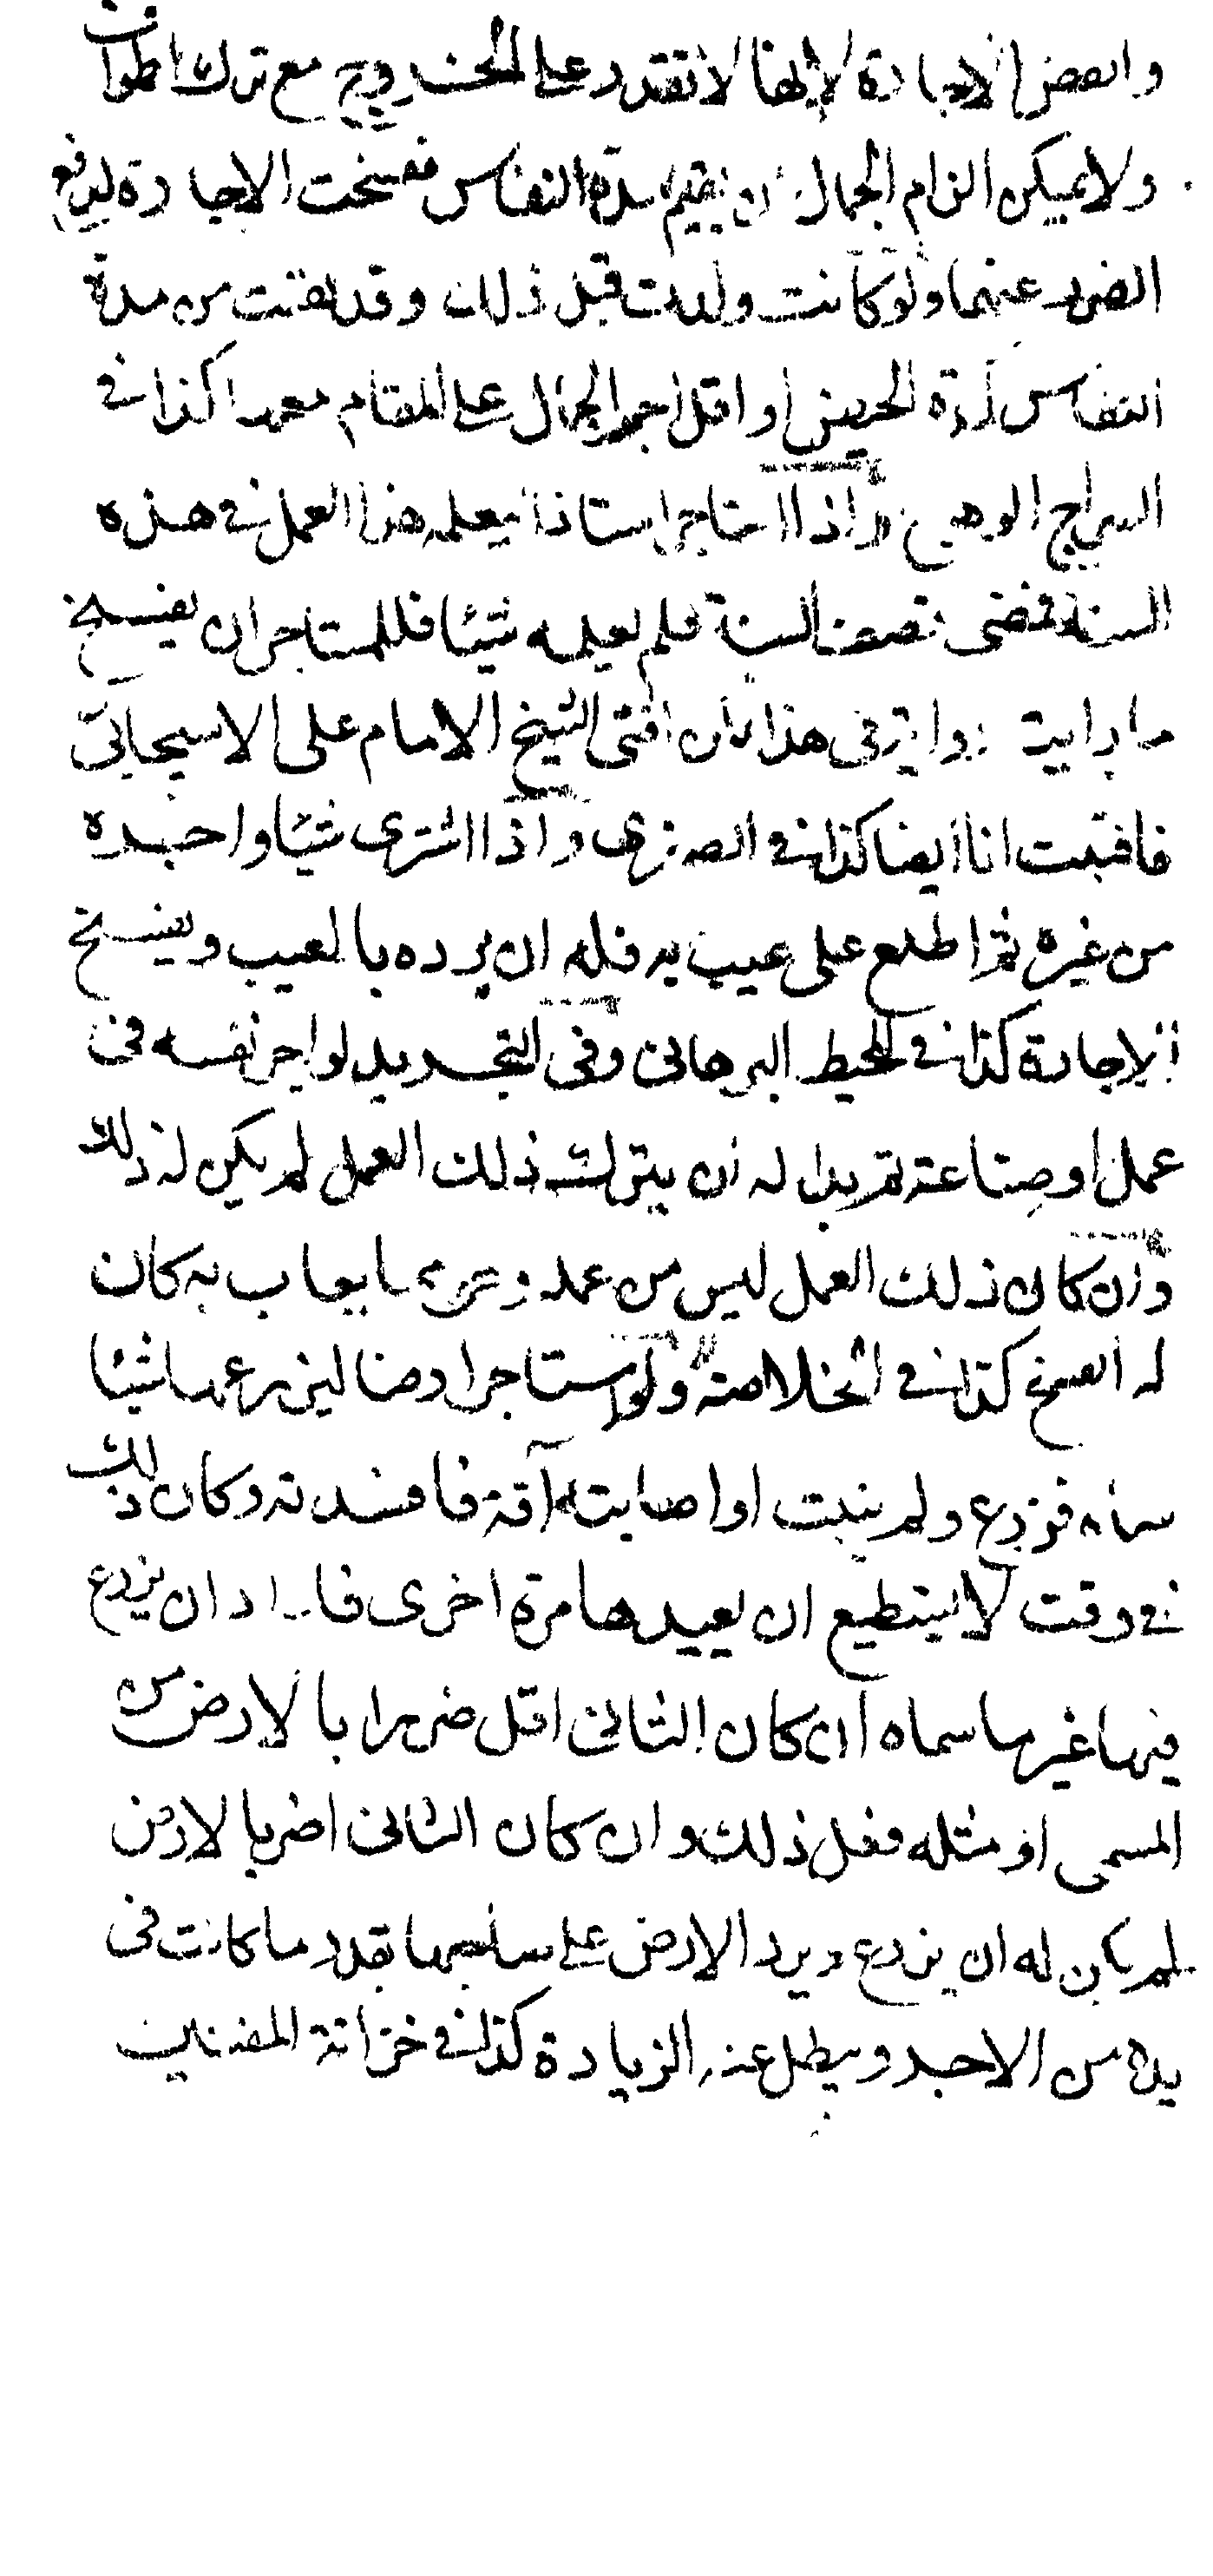 وانقض الاجارة لانها لا تقدر على الخروج مع ترك الطواف
ولا يمكن الزام الجمال ان يقيم مدة النفاس ففسخت الاجارة ليدفع
الضرر عنهما ولو كانت ولدت قبل ذلك وقد بقيت من مدة
النفاس مدة الحيض او اقل اجبر الجمال على المقام معها كذا في
السراج الوهاج واذا استاجر استاذا ليعلمه هذا العمل في هذه
السنة فمضى نصف السنة فلم يعلمه شيئا فللمستاجر ان يفسخ
ما رايت رواية في هذا لكن افتى الشيخ الامام على الاسبيجابي
فافتيت انا ايضا كذا في الصغرى واذا اشترى شيئا واجره
من غيره ثم اطلع على عيب به فله ان يرده بالعيب ويفسخ
الاجارة كذا في المحيط البرهاني وفي التجريد لو اجر نفسه في
عمل او صناعة ثم بدا له ان يترك ذلك العمل لم يكن له ذلك
وان كان ذلك العمل ليس من عمله وهو مما يعاب به كان
له الفسخ كذا في الخلاصة ولو استاجر ارضا ليزرعها شيئا
سماه فزرع ولم ينبت او اصابته آفة فافسدته وكان ذلك
في وقت لا يستطيع ان يعيدها مرة اخرى فاراد ان يزرع
فيها غير ما سماه ان كان الثاني اقل ضررا بالارض من
المسمى او مثله فعل ذلك وان كان الثاني اضر بالارض
لم يكن له ان يزرع ويرد الارض على صاحبها بقدر ما كانت في
يده من الاجر ويبطل عنه الزيادة كذا في خزانة المفتيين